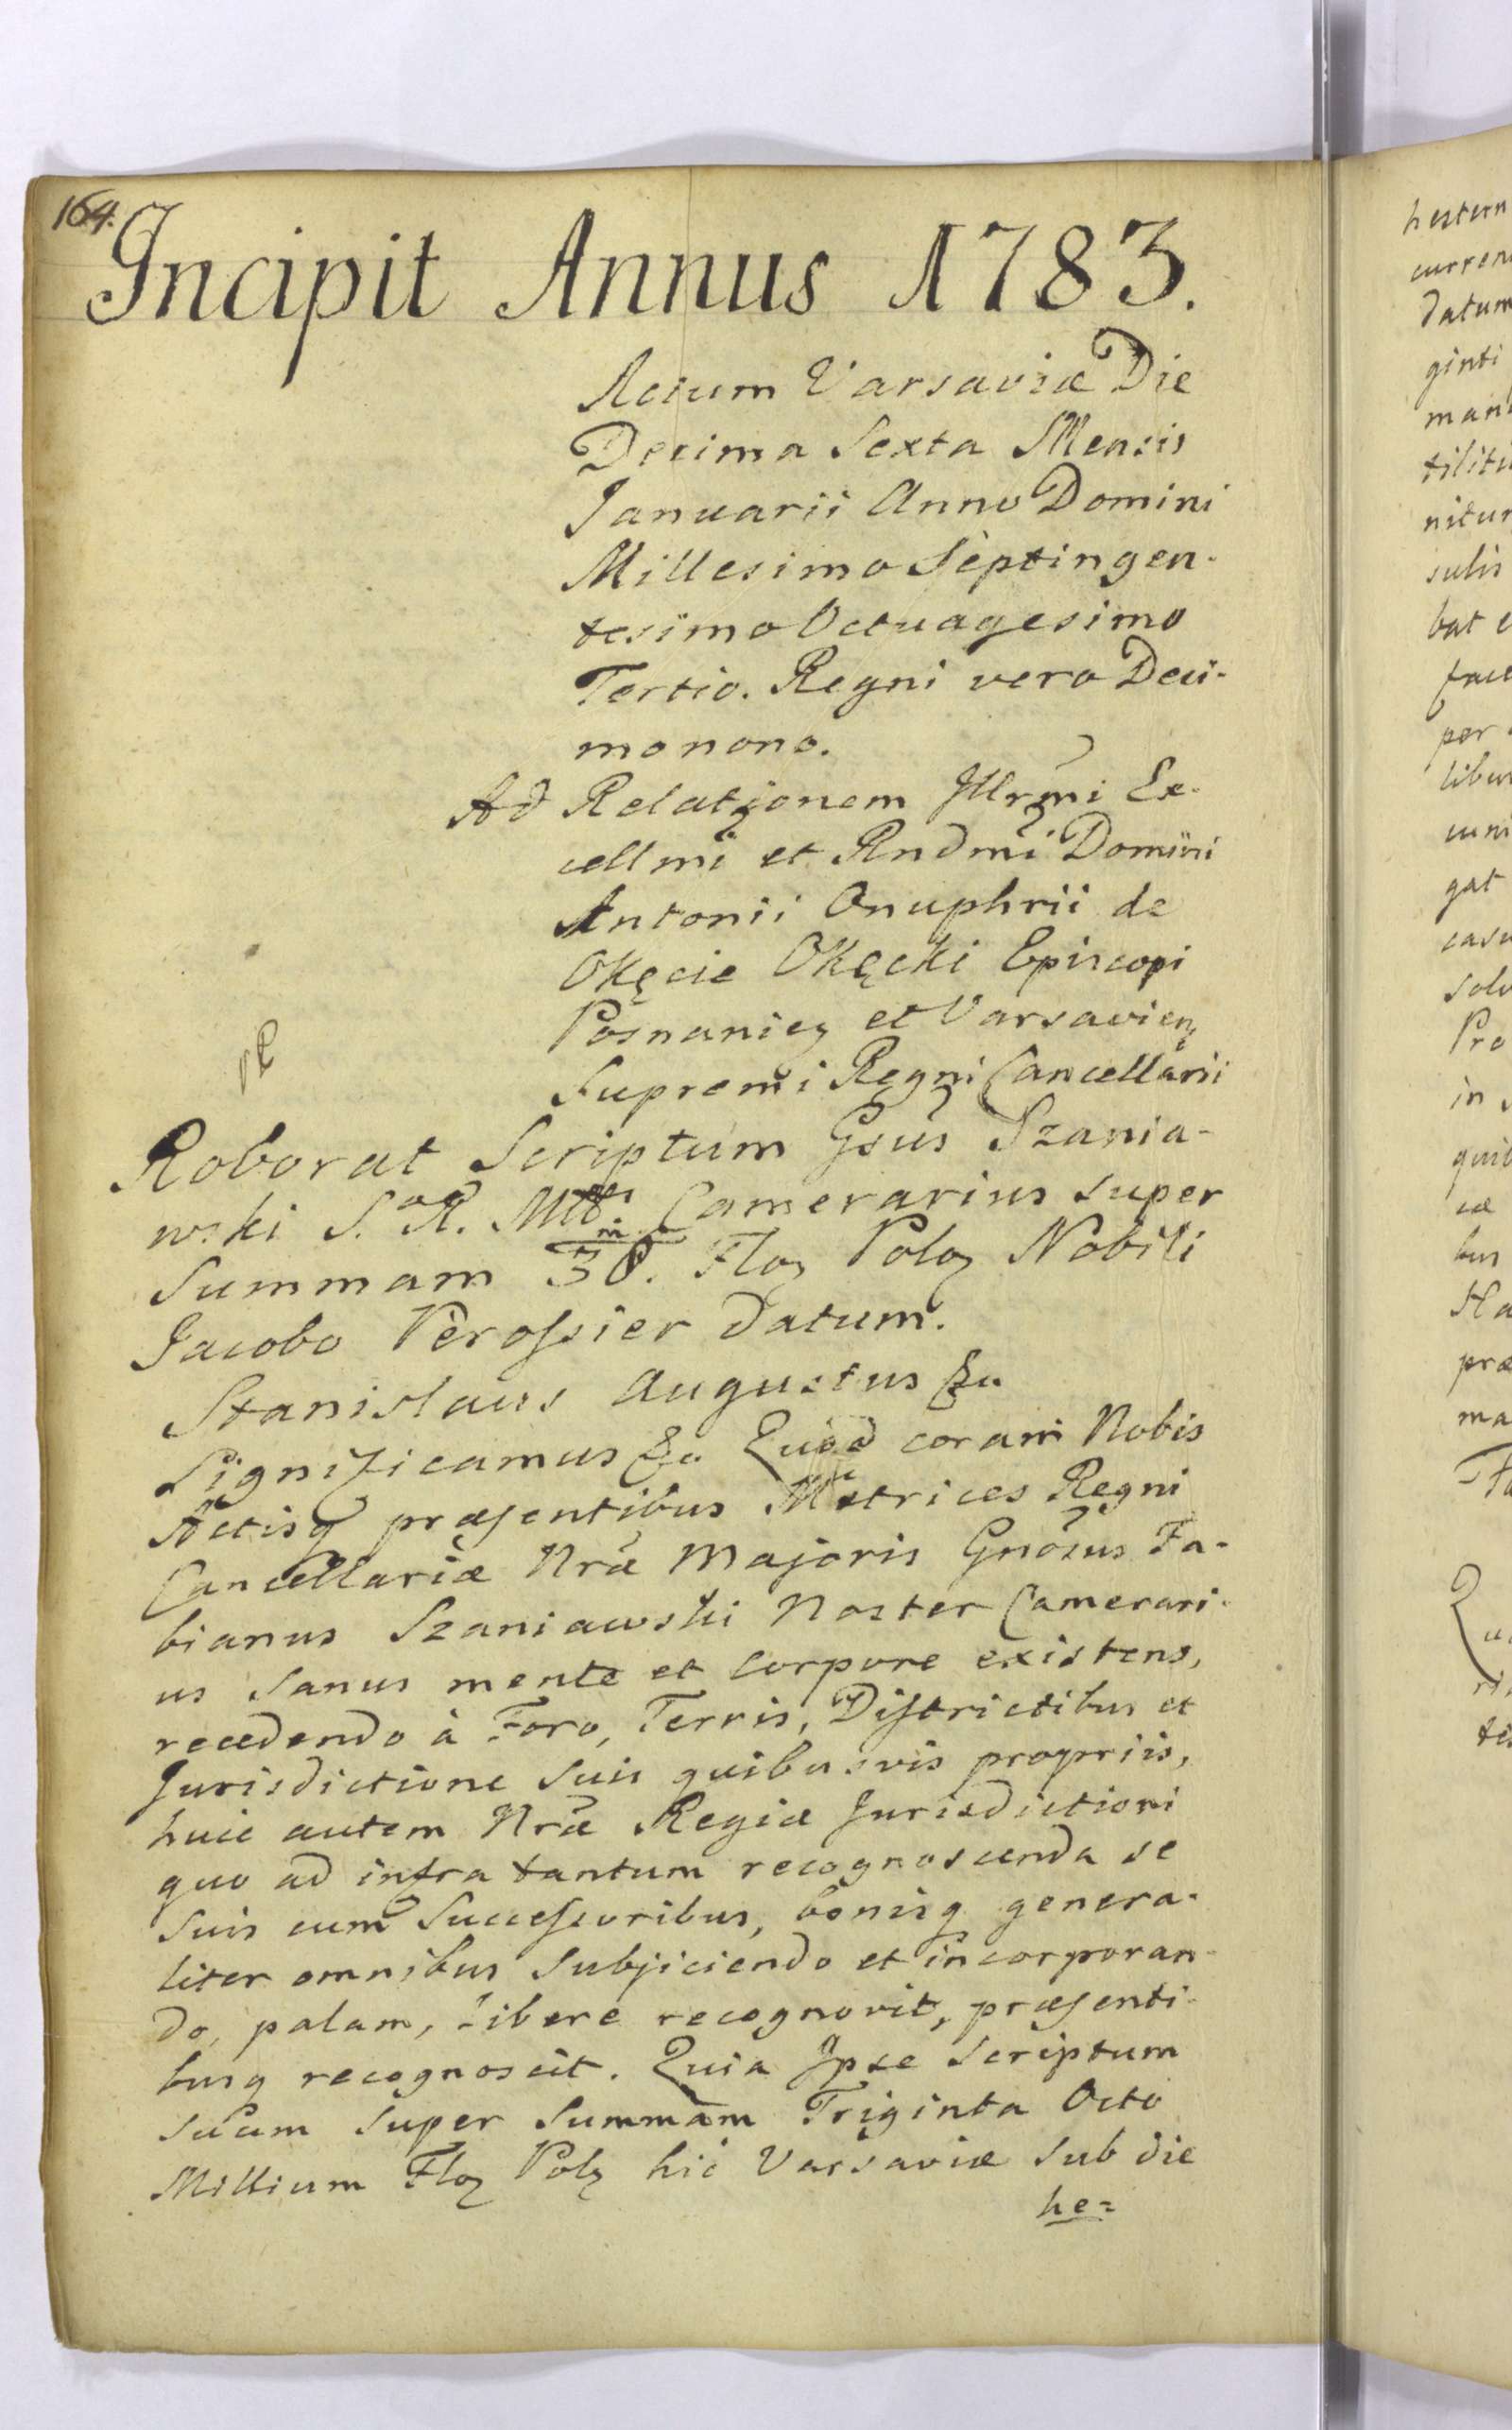 164.
Incipit Annus 1783.
Actum Varsaviæ Die
Decima Sexta Mensis
Januarii Anno Domini
Millesimo Septingen-
tesimo Octuagesimo
Tertio. Regni vero Deci-
monono.
Ad Relationem Illrmi Ex-
cellmi et Rndmi Domini
Antonii Onuphrii de
Okęcie Okęcki Episcopi
Posnanien et Varsavien
Supremi Regni Cancellarii
Roborat Scriptum Gsus Szania-
wski S. R. Mtis Camerarius super
Summam 38. Flo Polo Nobili
Jacobo Verossier datum.
Stanislaus Augustus &a
Significamus &a Quod coram Nobis
Actisq præsentibus Metrices Regni
Cancellariæ Nræ Majoris Gnosus Fa-
bianus Szaniawski Noster Camerari-
us Sanus mente et Corpore existens,
recedendo à Foro, Terris, Districtibus et
Jurisdictione Suis quibusvis propriis,
huic autem Nræ Regiæ Jurisdictioni
quo ad infra tantum recognoscenda se
Suis cum Successoribus, bonisq genera-
liter omnibus Subjiciendo et incorporan-
do, palam, Libere recognovit, præsenti-
busq recognoscit. Quia Ipse Scriptum
suum super Summam Triginta Octo
Millium Flo Pol hic Varsaviæ Sub die
he=
hestern
curren
datum
ginti
man
nitur
sulis
bat
per
libus
gat
casu
solv
Pro
in
præ
ma